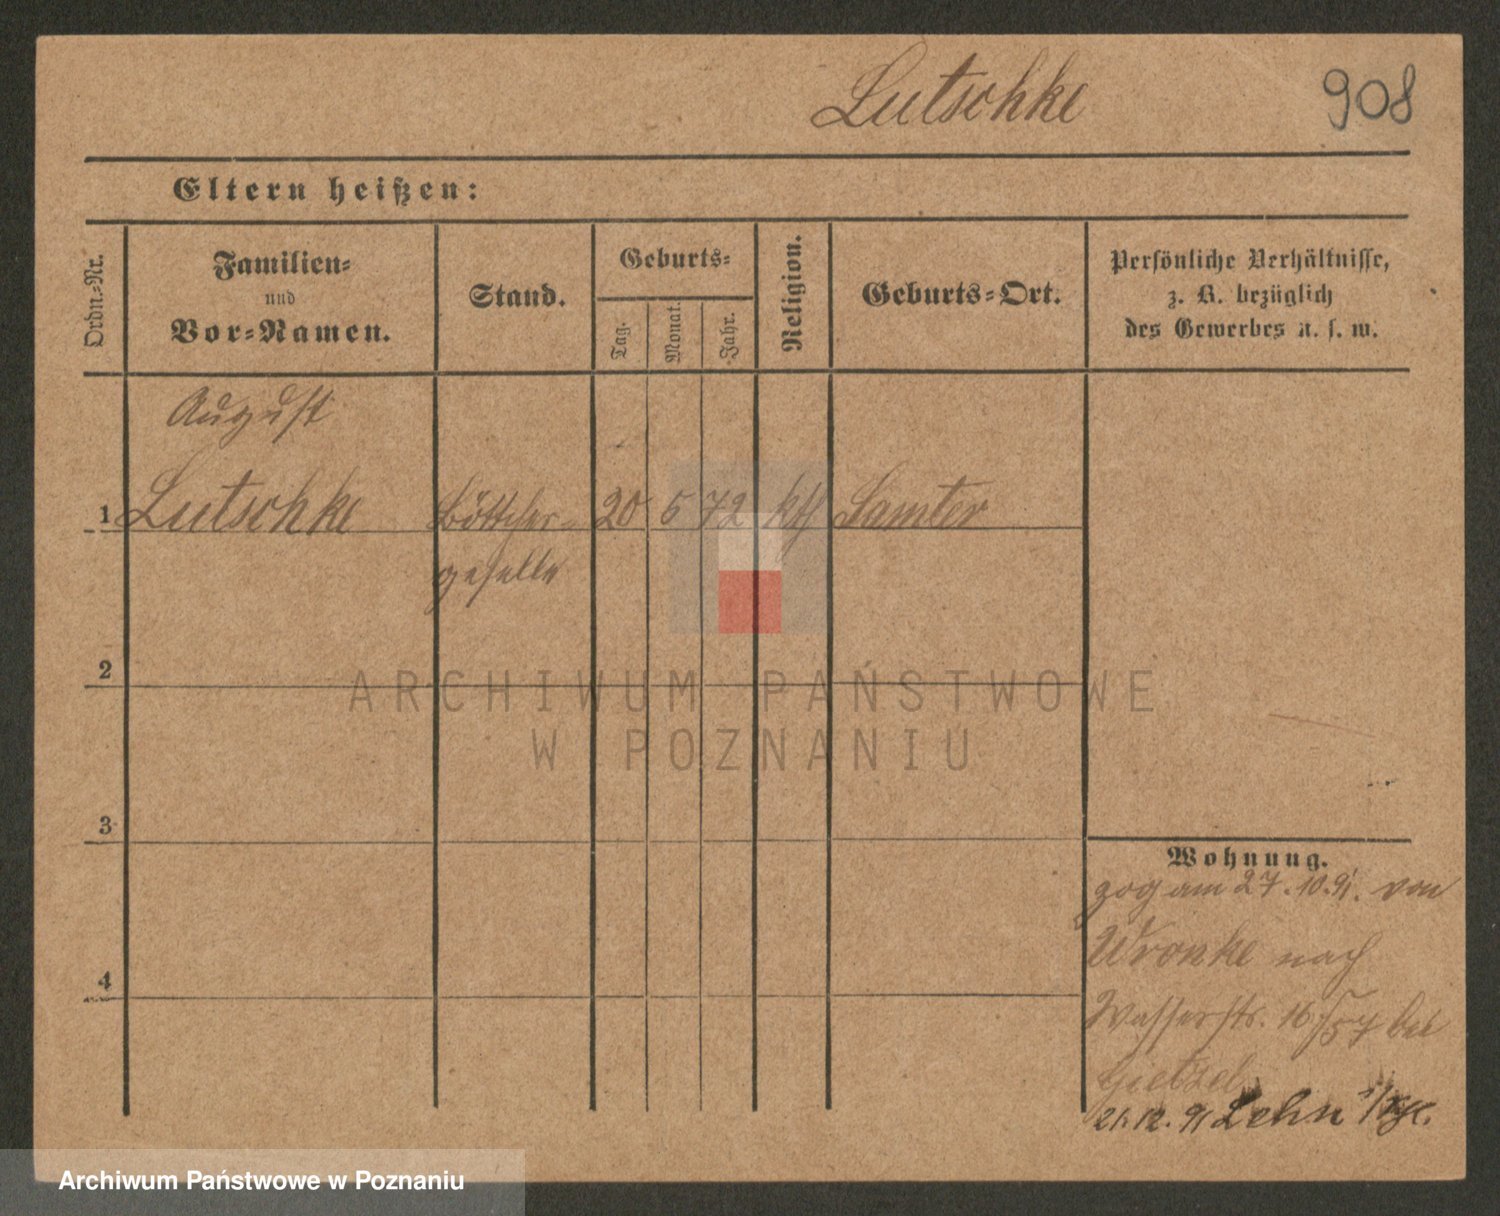 Lutschke
908
Eltern heißen:
Ordn.-Nr.
Familien-
und
Vor-Namen.
Stand.
Geburts-
Tag.
Monat.
Jahr.
Religion.
Geburts-Ort.
Persönliche Verhältnisse,
z. B. bezüglich
des Gewerbes u. s. w.
August
1 Lutschke Böttcher- 20 5 72 kth Samter
geselle
2
ARCHIWUM PAŃSTWOWE
W POZNANIU
3
Wohnung.
zog am 27.10.91. von
4
Wronke nach
Wasserstr. 16/57 bei
21.12.91 Lehn
Archiwum Państwowe w Poznaniu